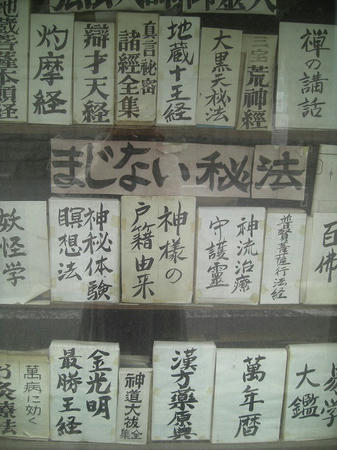 禅の講話
三宝荒神經
大黒天秘法
地蔵十王経
真言秘密
諸經全集
辯才天経
灼摩経
地蔵菩薩本願経
まじない秘法
百佛
行法経
神流治療
守護靈
神様の
戸籍由来
神秘体験
瞑想法
妖怪学
易学
大鑑
萬年暦
漢方藥原典
神道大祓
全集
金光明
最勝王経
萬病に効く
お灸療法